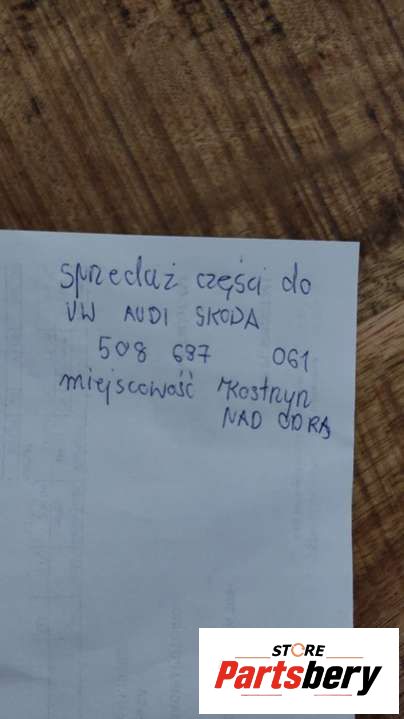 sprzedaż części do
VW AUDI SKODA
508 687 061
miejscowość Kostrzyn
NAD ODRĄ
STORE
Partsbery